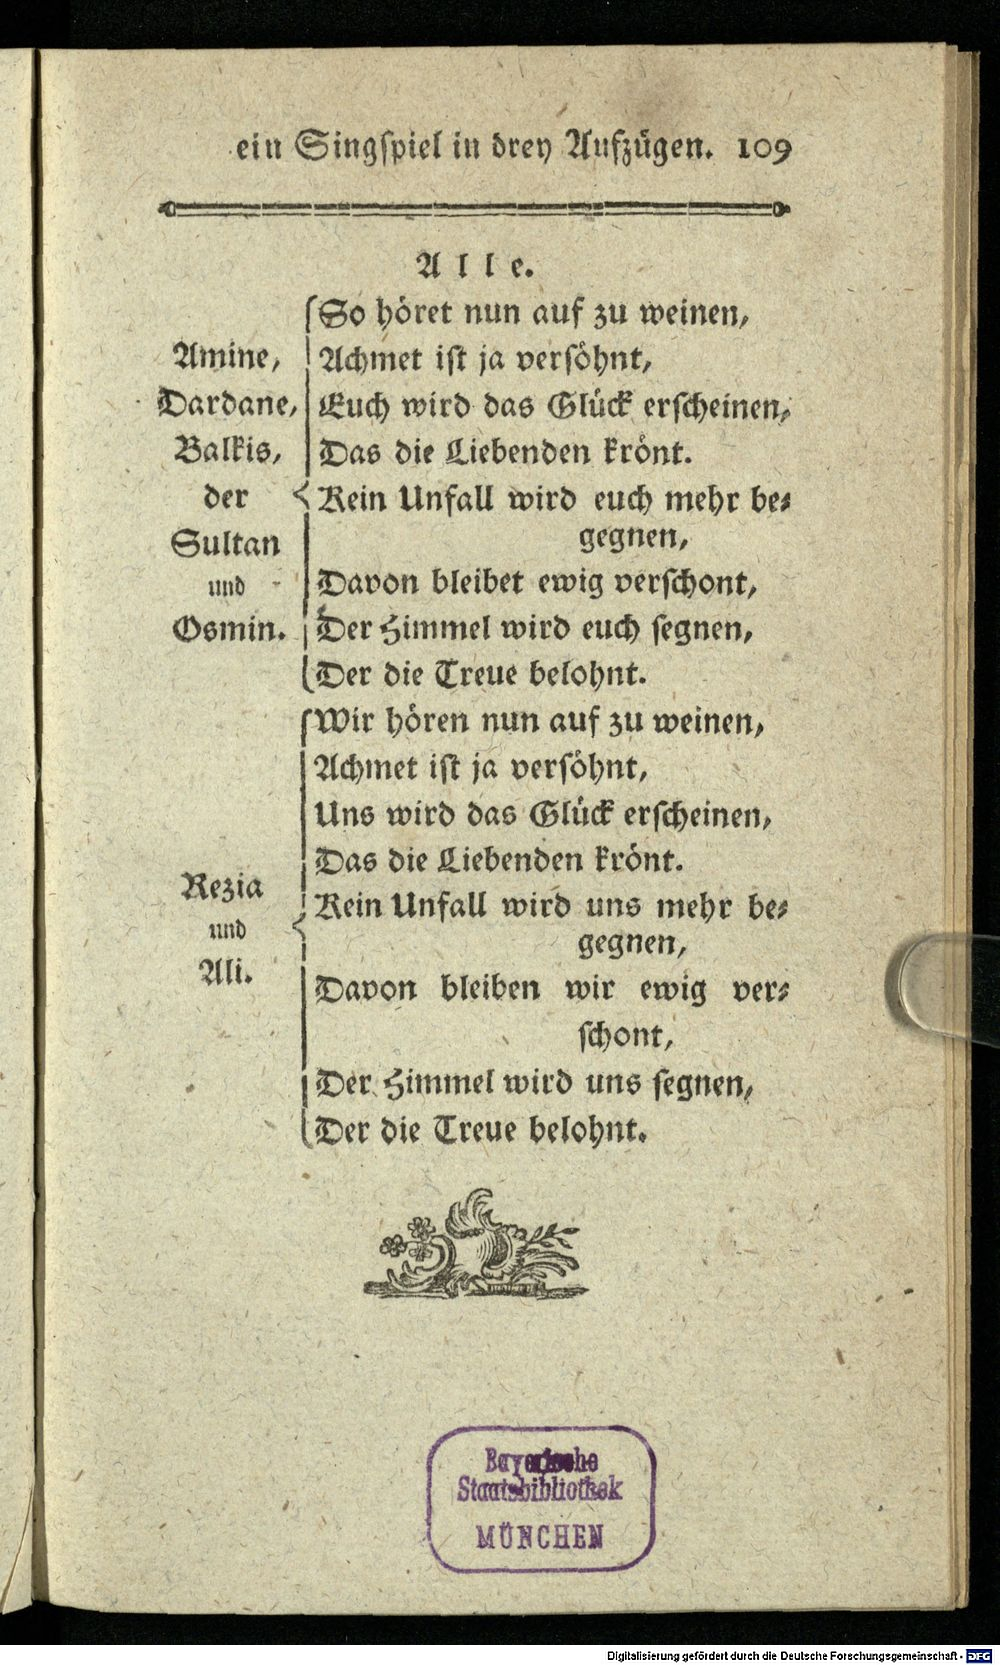 ein Singspiel in drey Aufzügen. 109
Alle.
So höret nun auf zu weinen,
Amine, Achmet ist ja versöhnt,
Dardane, Euch wird das Glück erscheinen,
Balkis, Das die Liebenden krönt.
der Kein Unfall wird euch mehr be-
gegnen,
Sultan
und Davon bleibet ewig verschont,
Osmin. Der Himmel wird euch segnen,
Der die Treue belohnt.
Wir hören nun auf zu weinen,
Achmet ist ja versöhnt,
Uns wird das Glück erscheinen,
Das die Liebenden krönt.
Rezia Kein Unfall wird uns mehr be-
und gegnen,
Ali. Davon bleiben wir ewig ver-
schont,
Der Himmel wird uns segnen,
Der die Treue belohnt.
Bayerische
Staatsbibliothek
MÜNCHEN
Digitalisierung gefördert durch die Deutsche Forschungsgemeinschaft - DFG